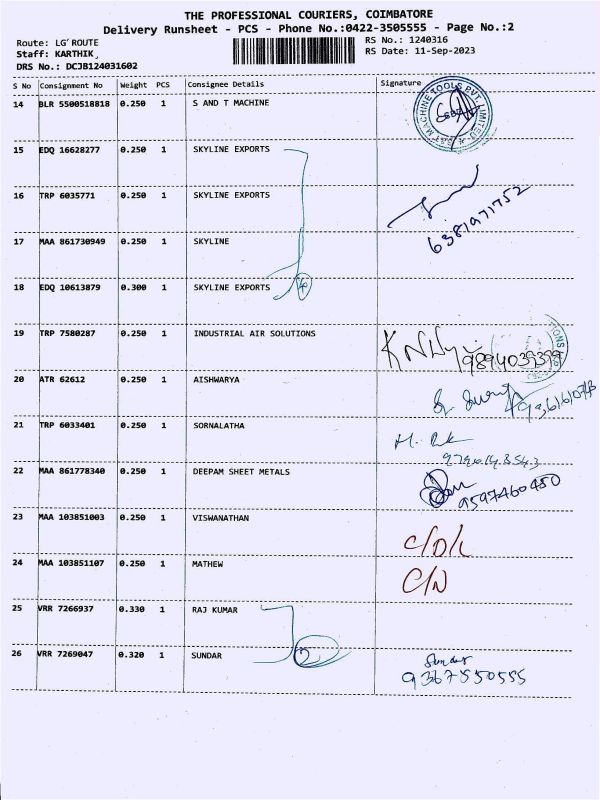 THE PROFESSIONAL COURIERS, COIMBATORE
Delivery Runsheet - PCS - Phone No.:0422-3505555 - Page No.:2
Route: LG' ROUTE
Staff: KARTHIK
DRS No.: DCJB124031602
RS No.: 1240316
RS Date: 11-Sep-2023
S No Consignment No Weight PCS Consignee Details Signature
14 BLR 5500518818 0.250 1 S AND T MACHINE
S&T MACHINE TOOLS PVT. LIMITED
15 EDQ 16628277 0.250 1 SKYLINE EXPORTS
16 TRP 6035771 0.250 1 SKYLINE EXPORTS
6381971752
17 MAA 861730949 0.250 1 SKYLINE
18 EDQ 10613879 0.300 1 SKYLINE EXPORTS
4
19 TRP 7580287 0.250 1 INDUSTRIAL AIR SOLUTIONS
9894039399
20 ATR 62612 0.250 1 AISHWARYA
21 TRP 6033401 0.250 1 SORNALATHA
22 MAA 861778340 0.250 1 DEEPAM SHEET METALS
9597460450
23 MAA 103851003 0.250 1 VISWANATHAN
C/D/L
24 MAA 103851107 0.250 1 MATHEW
C/N
25 VRR 7266937 0.330 1 RAJ KUMAR
26 VRR 7269047 0.320 1 SUNDAR
2
Sundar
9367550555